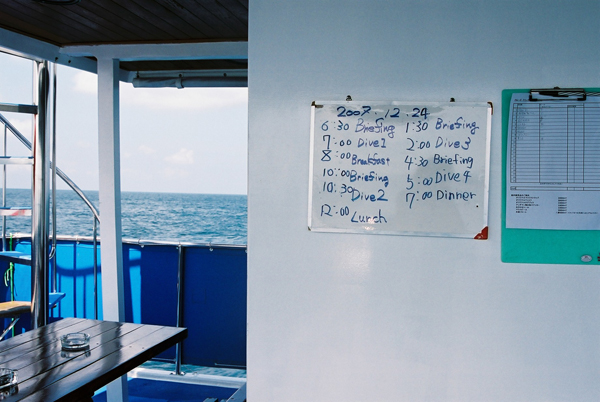 2007.12.24
6:30 Briefing
7:00 Dive1
8:00 Breakfast
10:00 Briefing
10:30 Dive2
12:00 Lunch
1:30 Briefing
2:00 Dive3
4:30 Briefing
5:00 Dive4
7:00 Dinner